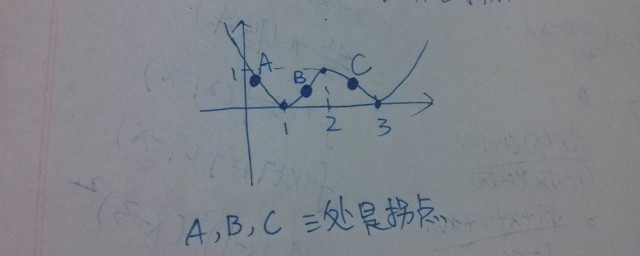 1 A B C
1 2 3
A, B, C 三处是拐点